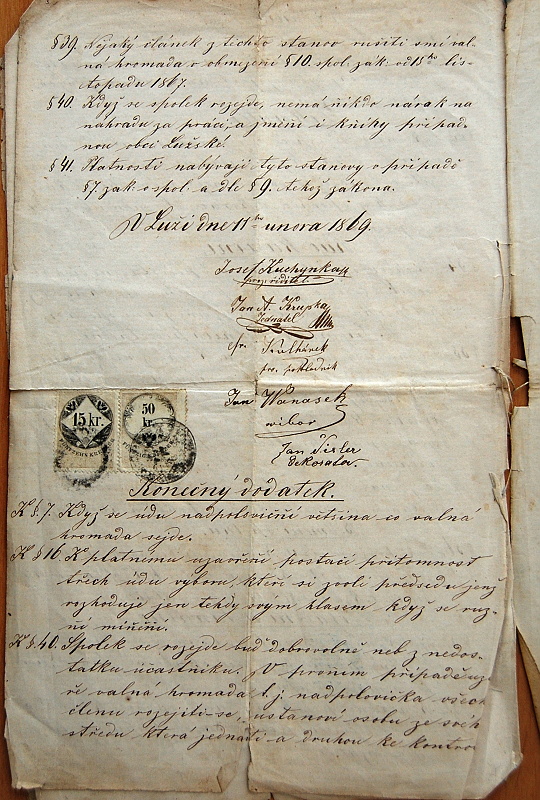 §39. Nějaký článek z techto stanov rušiti smí val-
ná hromada v obmezení §10. spol. zák. od 15ho lis-
topadu 1867.
§40. Když se spolek rozejde, nemá nikdo nárok na
nahradu za práci, a jmění i knihy připad-
nou obci Lužské.
§41. Platnosti nabývají tyto stanovy v případě
§7. zak. o spol. a dle §9. tehož zákona.
V Luži dne 11ho unora 1869.
Josef Kuchynka
Jan A. Krupka
Jednatel
fr. Kulhánek
pro. pokladník
Jan Wanasek
wibor
Jan
15 kr.
50
kr.
Konečný dodatek.
K §.7. Když se údu nadpolovičňí větsina co valna
hromada sejde.
K §16. K platnému uzavřeňí postačí přítomnost
třech údu výboru, kteří si zvolí předsedu jenž
rozhoduje jen tehdy svým hlasem když se ruz-
ní míněňí.
K §.40. Spolek se rozejde buď dobrovolně neb z nedos-
tatku účastníku. V prvním případě uz-
ře valna hromada t.j. nadpolovička všech
členu rozejiti se, ustanoví osobu ze svéh
středu která jednati a druhou ke kontro